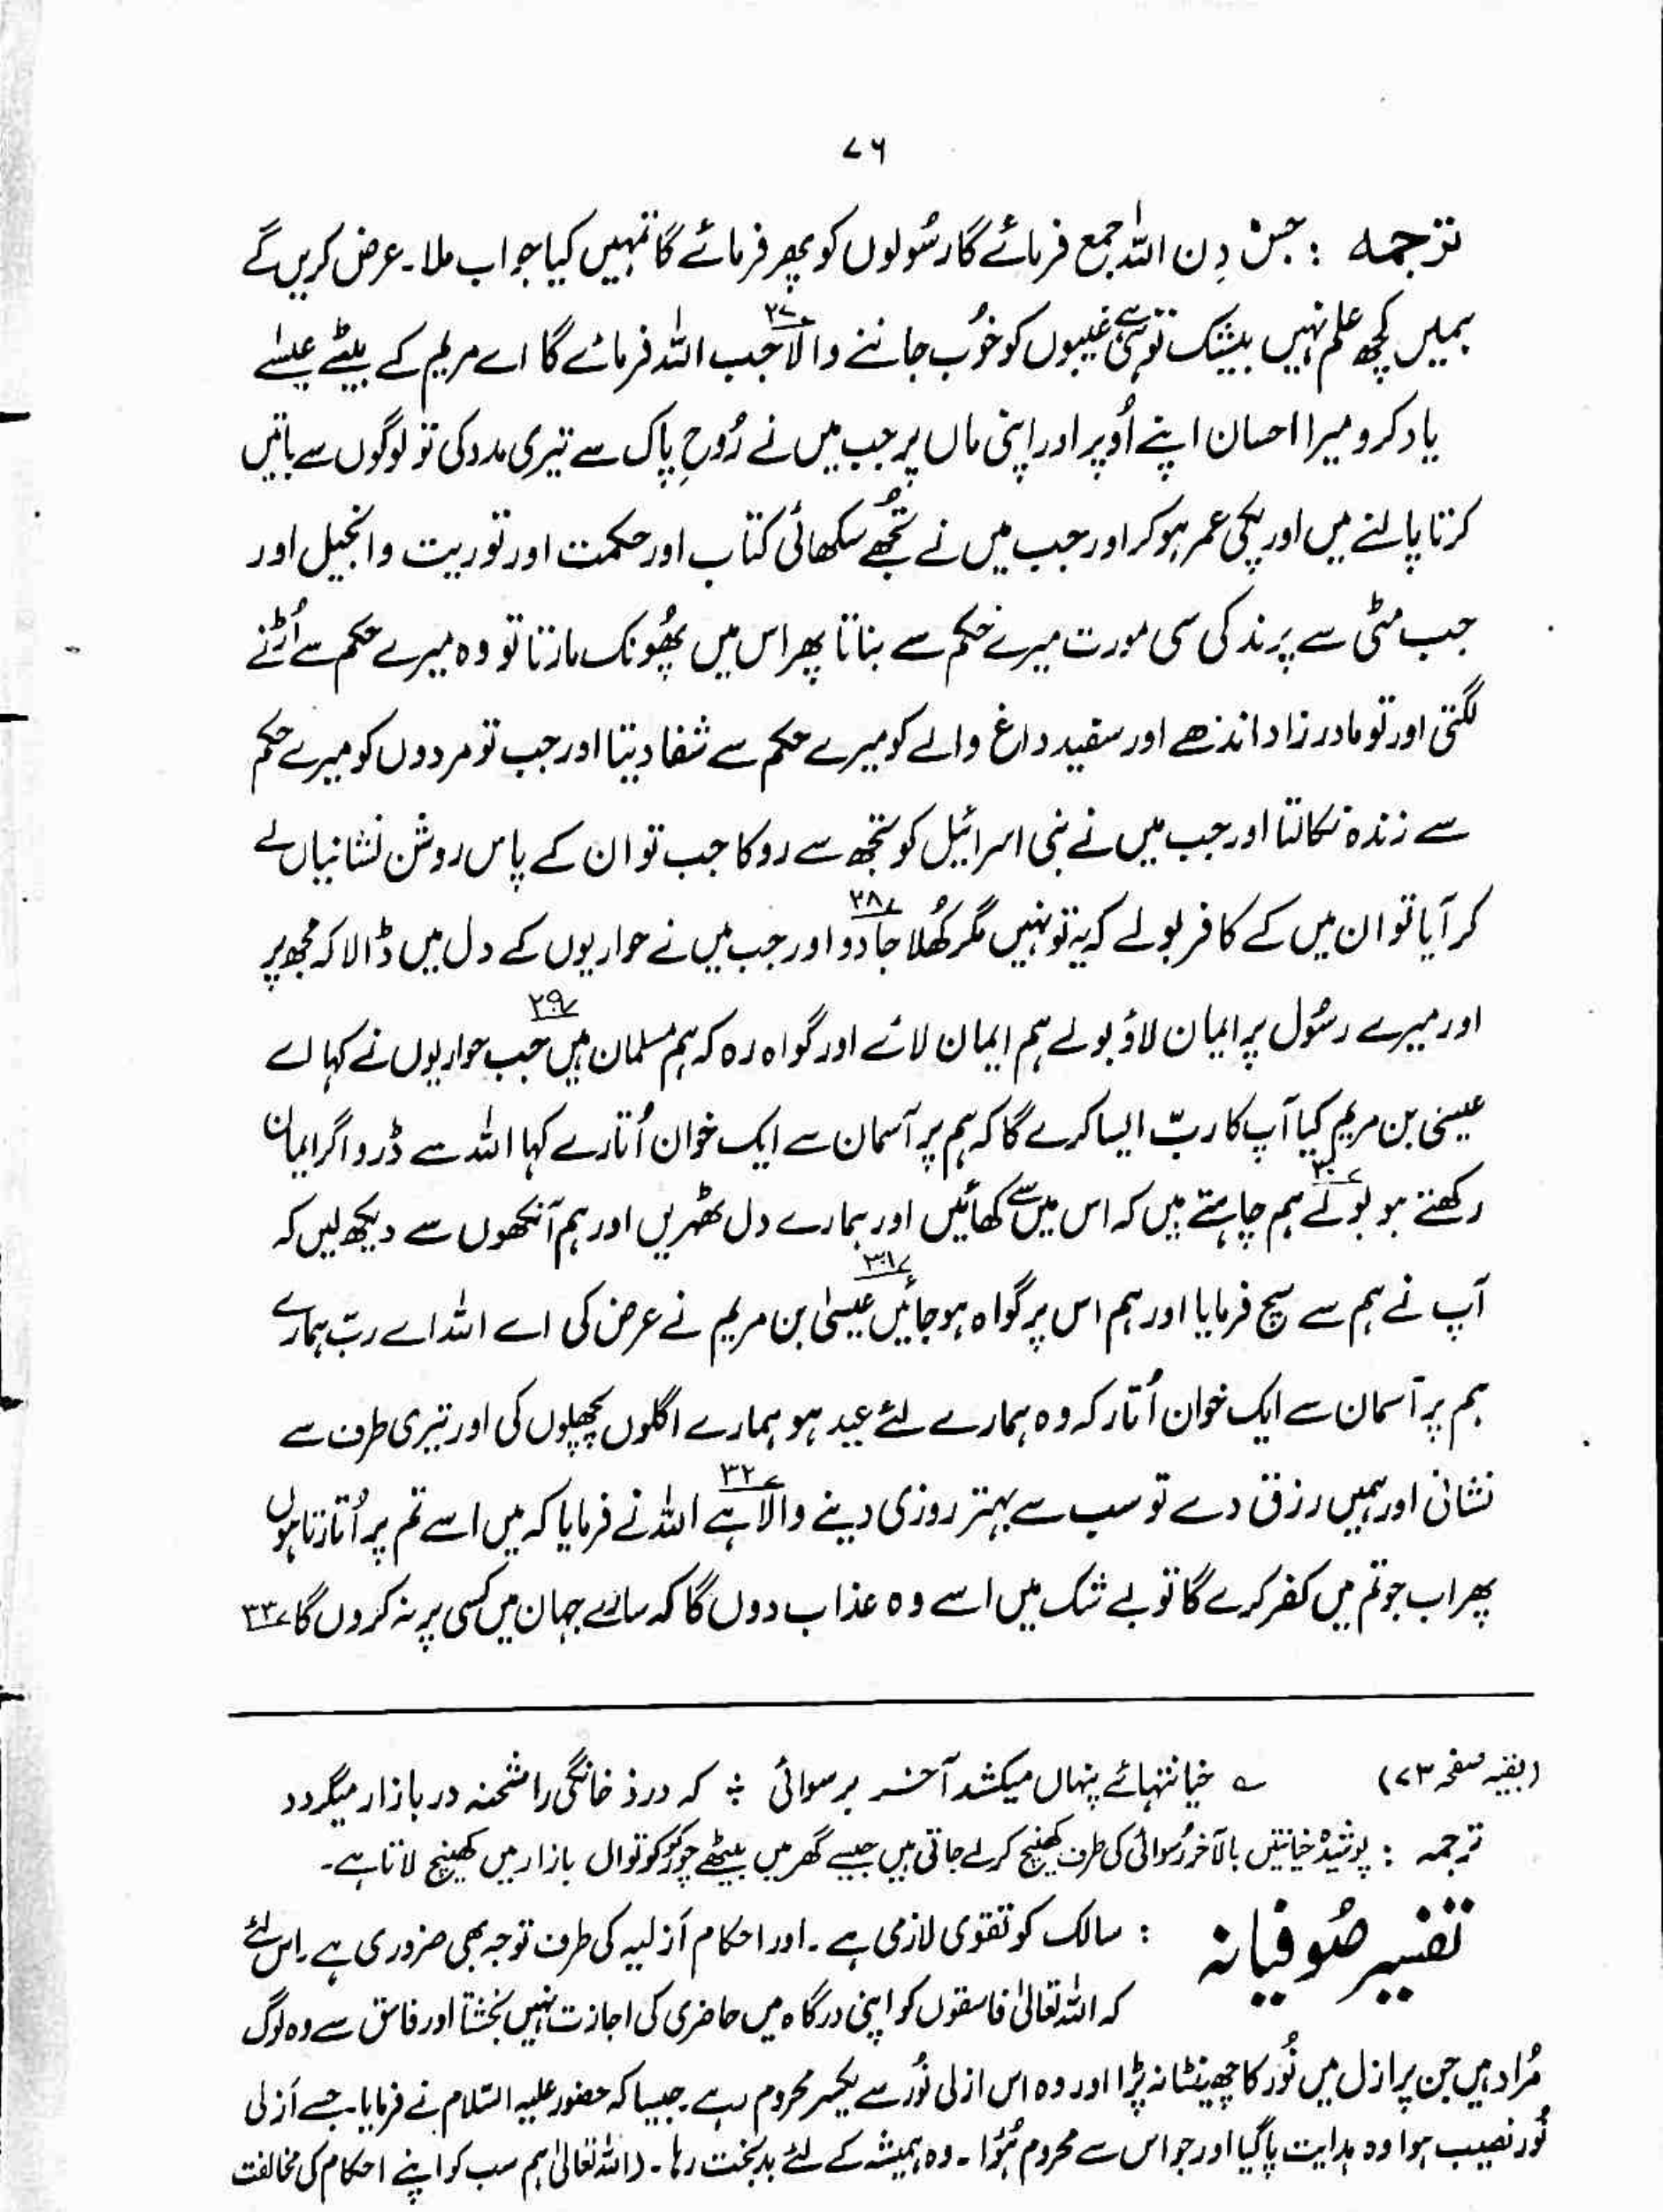 ۷۶
ترجمہ : جس دِن اللہ جمع فرمائے گا رسُولوں کو پھر فرمائے گا تمہیں کیا جواب ملا۔ عرض کریں گے
ہمیں کچھ علم نہیں بیشک تو ہی ہے غیبوں کو خوُب جاننے والا ۲۷؎ جب اللہ فرمائے گا اے مریم کے بیٹے عیسےٰ
یاد کرو میرا احسان اپنے اُوپر اور اپنی ماں پر جب میں نے رُوحِ پاک سے تیری مدد کی تو لوگوں سے باتیں
کرتا پالنے میں اور پکی عمر ہوکر اور جب میں نے تجُھے سکھائی کتاب اور حکمت اور توریت وانجیل اور
جب مٹی سے پرند کی سی مورت میرے حکم سے بناتا پھر اس میں پھُونک مارتا تو وہ میرے حکم سے اُڑنے
لگتی اور تو مادر زاد اندھے اور سفید داغ والے کو میرے حکم سے شفا دیتا اور جب تو مردوں کو میرے حکم
سے زندہ نکالتا اور جب میں نے بنی اسرائیل کو تجھ سے روکا جب تو ان کے پاس روشن نشانیاں لے
کر آیا تو ان میں کے کافر بولے کہ یہ تو نہیں مگر کھُلا جادو ۲۸؎ اور جب میں نے حواریوں کے دل میں ڈالا کہ مجھ پر
اور میرے رسُول پر ایمان لاؤ بولے ہم ایمان لائے اور گواہ رہ کہ ہم مسلمان ہیں ۲۹؎ جب حواریوں نے کہا اے
عیسیٰ بن مریم کیا آپ کا ربّ ایسا کرے گا کہ ہم پر آسمان سے ایک خوان اُتارے کہا اللہ سے ڈرو اگر ایمان
رکھتے ہو ۳۰؎ بولے ہم چاہتے ہیں کہ اس میں سے کھائیں اور ہمارے دل ٹھہریں اور ہم آنکھوں سے دیکھ لیں کہ
آپ نے ہم سے سچ فرمایا اور ہم اس پر گواہ ہوجائیں ۳۱؎ عیسیٰ بن مریم نے عرض کی اے اللہ اے ربّ ہمارے
ہم پر آسمان سے ایک خوان اُتار کہ وہ ہمارے لئے عید ہو ہمارے اگلوں پچھلوں کی اور تیری طرف سے
نشانی اور ہمیں رزق دے تو سب سے بہتر روزی دینے والا ہے ۳۲؎ اللہ نے فرمایا کہ میں اسے تم پر اُتارتا ہوں
پھر اب جو تم میں کفر کرے گا تو بے شک میں اسے وہ عذاب دوں گا کہ سارے جہان میں کسی پر نہ کروں گا ۳۳؎
(بقیہ صفحہ ۷۳) ؎ خیانتہائے پنہاں میکشد آخر برسوائی ؛ کہ دزد خانگی را شحنہ در بازار میگردد
ترجمہ : پوشیدہ خیانتیں بالآخر رُسوائی کی طرف کھینچ کر لے جاتی ہیں جیسے گھر میں بیٹھے چور کو کوتوال بازار میں کھینچ لاتا ہے۔
تفسیر صُوفیانہ : سالک کو تقوٰی لازمی ہے۔ اور احکام اَزلیہ کی طرف توجہ بھی ضروری ہے۔ اس لئے
کہ اللہ تعالیٰ فاسقوں کو اپنی درگاہ میں حاضری کی اجازت نہیں بخشتا اور فاسق سے وہ لوگ
مُراد ہیں جن پر ازل میں نُور کا چھینٹا نہ پڑا اور وہ اس ازلی نُور سے یکسر محروم رہے جیسا کہ حضور علیہ السّلام نے فرمایا۔ جسے اَزلی
نُور نصیب ہوا وہ ہدایت پا گیا اور جو اس سے محروم ہُوا۔ وہ ہمیشہ کے لئے بدبخت رہا۔ (اللہ تعالیٰ ہم سب کو اپنے احکام کی مخالفت